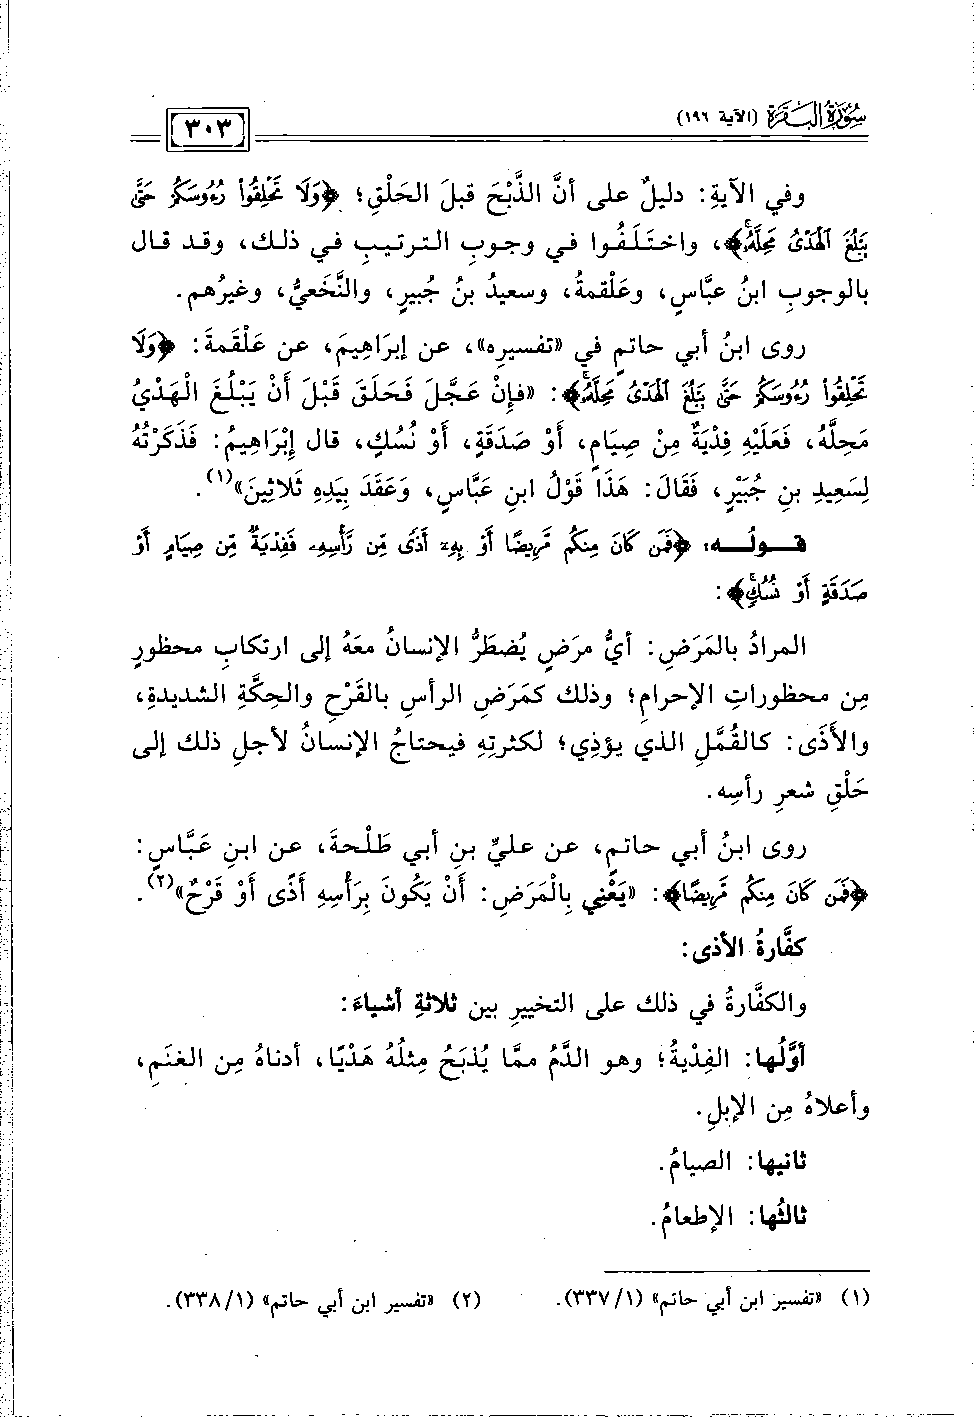 سُورَةُ البَقَرَةِ (الآية ١٩٦)
٣٠٣
وفي الآيةِ: دليلٌ على أنَّ الذَّبْحَ قبلَ الحَلْقِ؛ ﴿وَلَا تَحْلِقُوا۟ رُءُوسَكُمْ حَتَّىٰ
يَبْلُغَ ٱلْهَدْىُ مَحِلَّهُۥۚ﴾، واختَلَفُوا في وجوبِ الترتيبِ في ذلك، وقد قال
بالوجوبِ ابنُ عبَّاسٍ، وعَلْقمةُ، وسعيدُ بنُ جُبيرٍ، والنَّخَعيُّ، وغيرُهم.
روى ابنُ أبي حاتمٍ في «تفسيرِه»، عن إبرَاهِيمَ، عن عَلْقَمةَ: ﴿وَلَا
تَحْلِقُوا۟ رُءُوسَكُمْ حَتَّىٰ يَبْلُغَ ٱلْهَدْىُ مَحِلَّهُۥۚ﴾: «فإِنْ عَجَّلَ فَحَلَقَ قَبْلَ أَنْ يَبْلُغَ الْهَدْيُ
مَحِلَّهُ، فَعَلَيْهِ فِدْيَةٌ مِنْ صِيَامٍ، أَوْ صَدَقَةٍ، أَوْ نُسُكٍ، قال إِبْرَاهِيمُ: فَذَكَرْتُهُ
لِسَعِيدِ بنِ جُبَيْرٍ، فَقَالَ: هَذَا قَوْلُ ابنِ عَبَّاسٍ، وَعَقَدَ بِيَدِهِ ثَلَاثِينَ»(١).
قـولـه: ﴿فَمَن كَانَ مِنكُم مَّرِيضًا أَوْ بِهِۦٓ أَذًى مِّن رَّأْسِهِۦ فَفِدْيَةٌ مِّن صِيَامٍ أَوْ
صَدَقَةٍ أَوْ نُسُكٍۚ﴾:
المرادُ بالمَرَضِ: أيُّ مرَضٍ يُضطَرُّ الإنسانُ معَهُ إلى ارتكابِ محظورٍ
مِن محظوراتِ الإحرامِ؛ وذلك كمَرَضِ الرأسِ بالقَرْحِ والحِكَّةِ الشديدةِ،
والأَذَى: كالقُمَّلِ الذي يؤذِي؛ لكثرتِهِ فيحتاجُ الإنسانُ لأجلِ ذلك إلى
حَلْقِ شعرِ رأسِه.
روى ابنُ أبي حاتمٍ، عن عليِّ بنِ أبي طَلْحةَ، عن ابنِ عَبَّاسٍ:
﴿فَمَن كَانَ مِنكُم مَّرِيضًا﴾: «يَعْنِي بِالْمَرَضِ: أَنْ يَكُونَ بِرَأْسِهِ أَذًى أَوْ قَرْحٌ»(٢).
كفَّارةُ الأذى:
والكفَّارةُ في ذلك على التخييرِ بين ثلاثةِ أشياءَ:
أوَّلُها: الفِدْيةُ؛ وهو الدَّمُ ممَّا يُذبَحُ مِثلُهُ هَدْيًا، أدناهُ مِن الغنَمِ،
وأعلاهُ مِن الإبلِ.
ثانيها: الصيامُ.
ثالثُها: الإطعامُ.
(١) «تفسير ابن أبي حاتم» (١/ ٣٣٧).
(٢) «تفسير ابن أبي حاتم» (١/ ٣٣٨).